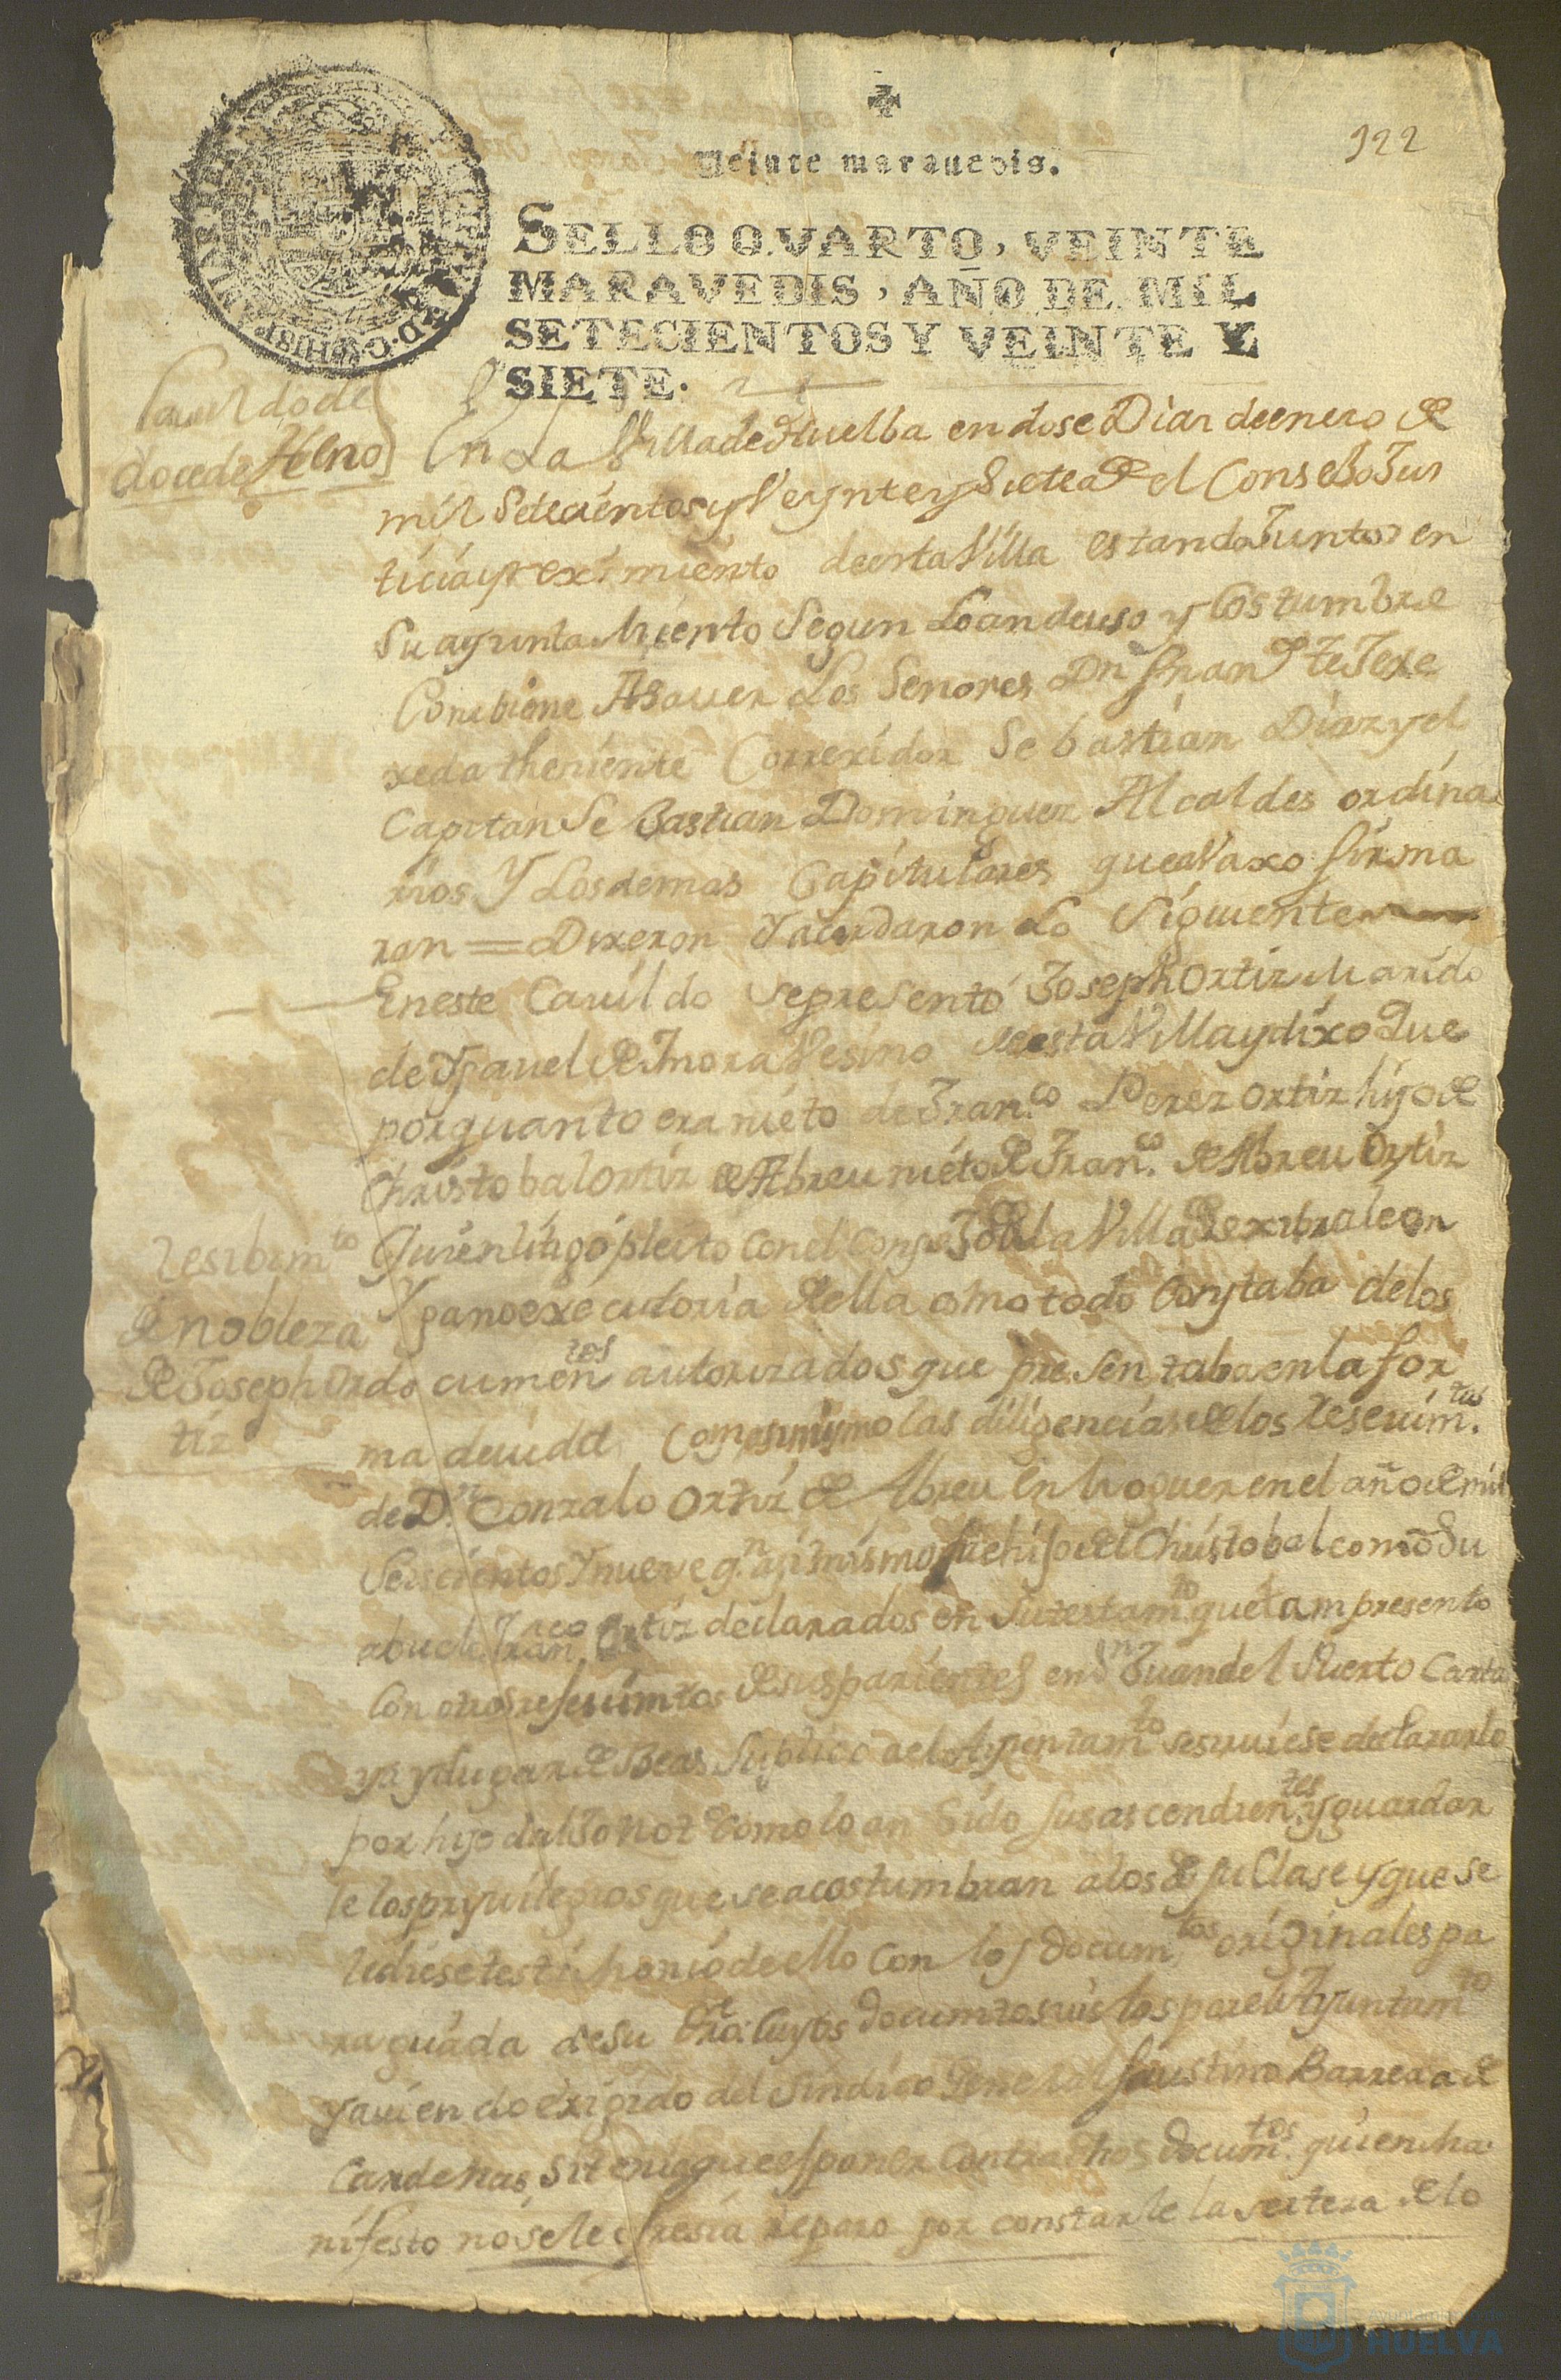 922
Veinte maravedis.
SELLO QVARTO, VEINTE
MARAVEDIS, AÑO DE MIL
SETECIENTOS Y VEINTE Y
SIETE.
Cauildo de
doce de Heno
En La Villa de Huelba en dose Dias de enero de
mil Setecientos y Veynte y Siete a el ConseJo Jus
ticia y reximiento de esta Villa estando Juntos en
Su ayuntamiento Segun Lo an de uso y Costumbre
Conbiene Asauer Los Senores Dn Fran TeJexe
xeda theniente Correxidor Sebastian Diaz y el
Capitan Sebastian Dominguez Alcaldes ordina
rios Y Los demas Capitulares que aVaxo firma
ran = Dixeron Yacordaron Lo Siguiente
En este Cauildo se presentó Joseph Ortiz Marido
de Ysauel de Mora Vesino de esta Villa y dixo Que
por quanto era nieto de Fran.co Perez Ortiz hijo de
Christobal Ortiz de Abreu nieto de Fran.co de Abreu Ortiz
Quien litigó pleito con el Conse Jo de la Villa de xibraleon
Y gano executoria de ella como todo Constaba de los
resibim.to
de nobleza
de Joseph Or
tiz
documen.tos autorizados que presentaba en la for
ma deuida Como asimismo las diligencias de los reseuim.tos
de D.n Gonzalo Ortiz de Abreu en Moguer en el año de mil
Seiscientos Y nueve q.n asimismo fue hijo de el Christobal como Su
abuelo Fran.co Ortiz declarados en Su testam.to que tam presento
Con otros reseuimtos de sus parientes en S.n Juan del Puerto Carta
ya y Lugar de Beas Suplico a el Ayuntam.to se siruiese declararlo
por hijo dalgo not como lo an Sido sus ascendien.tes y guardar
le los pryuilegios que se acostumbran a los de su Clase y que se
le diese testimonio de ello Con los docum.tos originales pa
ra guada de su Dro: Cuyos documtos uistos por el Ayuntam.to
y auiendo exigido del Sindico General Faustino Barrera de
Cardenas, Si tenia que esponer Contra dhos docum.tos quien ma
nifesto no se le ofresia reparo por constarle la serteza de lo
Ayuntamiento de
HUELVA